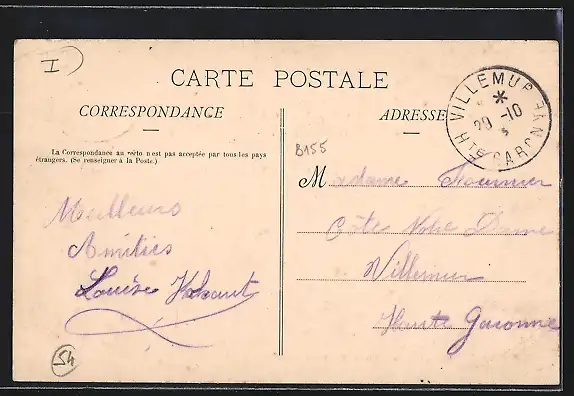 I
CARTE POSTALE
CORRESPONDANCE
La Correspondance au recto n'est pas acceptée par tous les pays
étrangers. (Se renseigner à la Poste.)
Meilleurs
Amitiés
Louise
54
ADRESSE
VILLEMUR
29 -10
Hte GARONNE
8155
Madame Fournier
Côte Notre Dame
Villemur
Haute Garonne